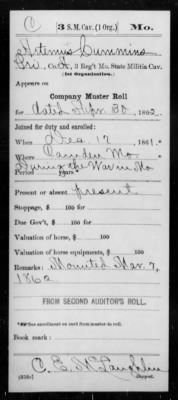 C 3 S.M. Cav. (1 Org.) Mo.
Artemus Cummins
Pri, Co. A, 3 Reg't Mo. State Militia Cav.
(1st Organization.)
Appears on
Company Muster Roll
for dated Apr. 30, 1862.
Joined for duty and enrolled:
When Dec. 17, 1861.
Where Camden Mo.
Period During the War in Mo years
Present or absent present
Stoppage, $ 100 for
Due Gov't, $ 100 for
Valuation of horse, $ 100
Valuation of horse equipments, $ 100
Remarks: Mounted Mar. 7,
1862
FROM SECOND AUDITOR'S ROLL.
*See enrollment on card from muster-in roll.
Book mark:
C. E. McLaughlin
Copyist.